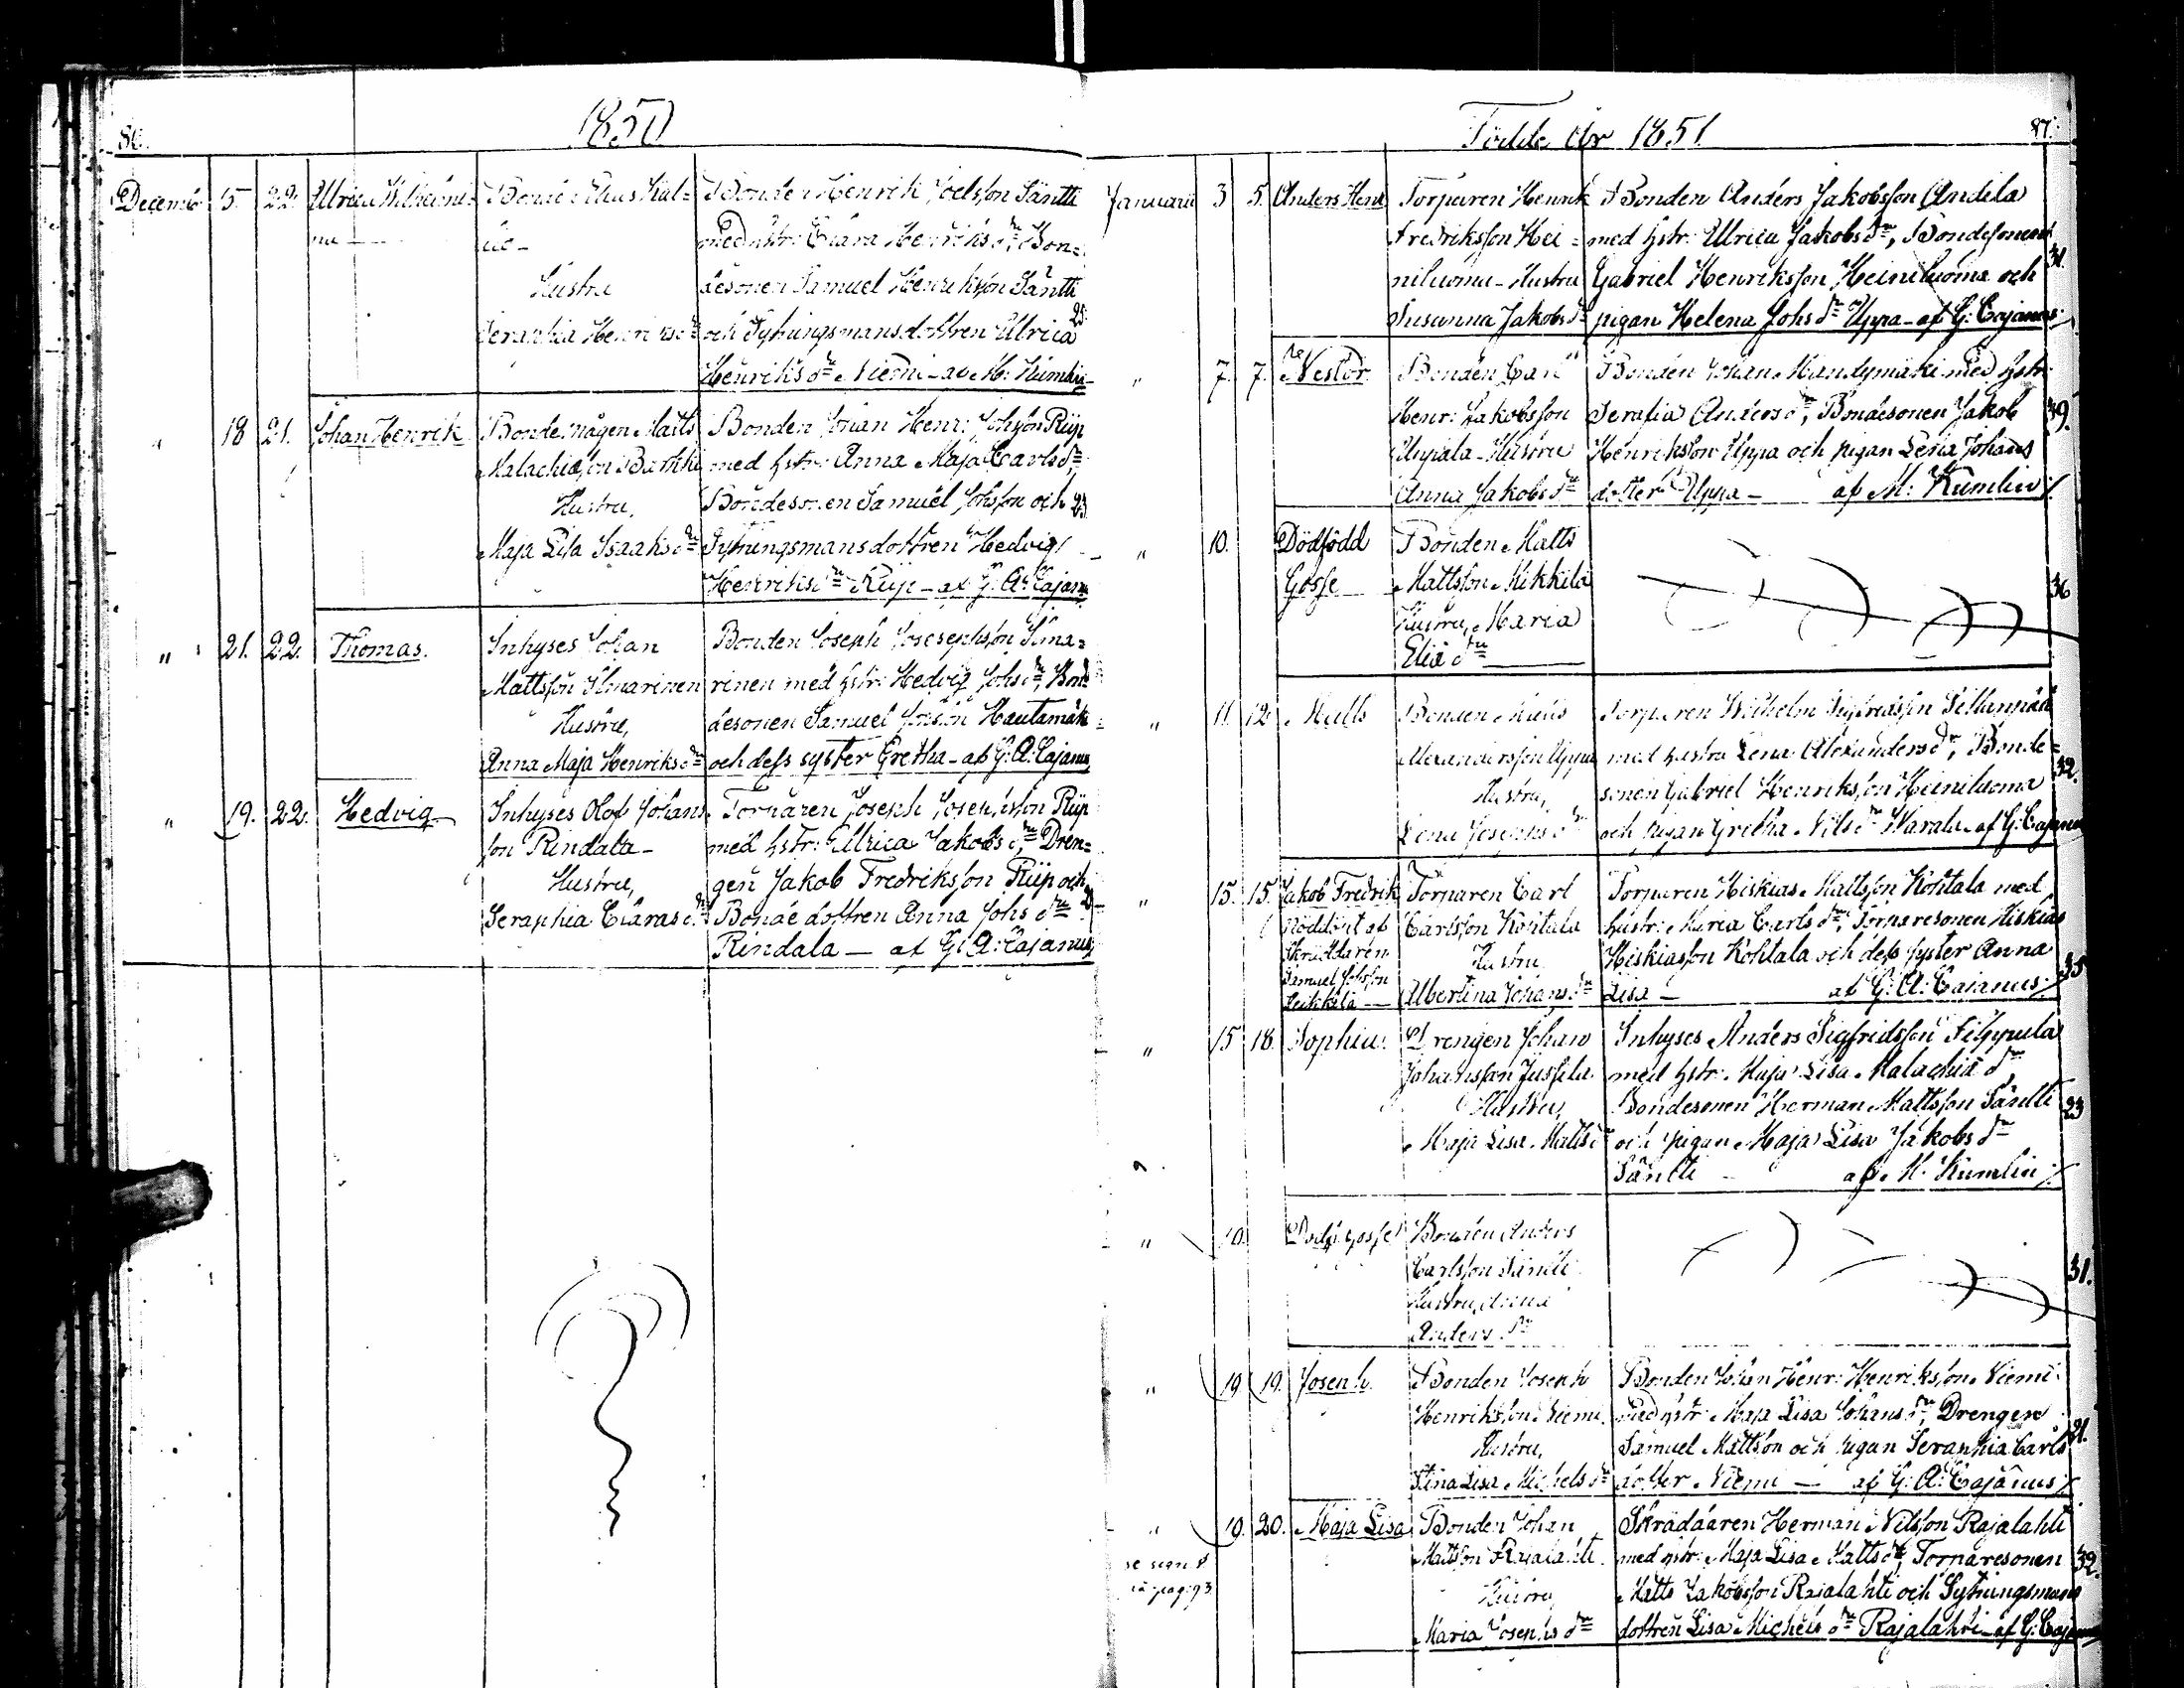 1850
Decemb. 15. 22. Ulrica Wilhelmi=
na
Hustru
Seraphia Henriksdr
Bonden Henrik Joelsson Säntti
med hstr: Clara Henriksdr, Bon=
desonen Samuel Henriksson Säntti
och Sytningsmansdottren Ulrica 25.
Henriksdr Niemi - af M: Kumlin
" 18 21. Johan Henrik
Bondemågen Matts
Malachiasson
Hustru,
Maja Lisa Isaaksdr
Bonden Johan Henr: Johsson Riip
med hstr: Anna Maja Carlsdr,
Bondesonen Samuel Johsson och 23.
Sytningsmansdottren Hedvig
Henriksdr Riip - af G. A: Cajanus
" 21. 22. Thomas.
Inhyses Johan
Mattsson Ilmarinen
Hustru,
Anna Maja Henriksdr
Bonden Joseph Josesephsson Ilma=
rinen med hstr: Hedvig Johsdr, Bon
desonen Samuel Johsson Hautamäk
och dess syster Gretha - af G: A: Cajanus
" 19. 22. Hedvig
Inhyses Olof Johans
son Rindala -
Hustru,
Seraphia Clarasdr
Torparen Joseph Josephsson Riip
med hstr: Ulrica Jakobsdr, Dren=
gen Jakob Fredriksson Riip och
Bondedottren Anna Johsdr
Rindala - af G: A: Cajanus
Födde År 1851
87.
Januarii 3 5. Anders Henr
Torparen Henrik
Fredriksson Hei=
niluoma - Hustru
Susanna Jakobsdr
Bonden Anders Jakobsson Andila
med hstr: Ulrica Jakobsdr, Bondesonen
Gabriel Henriksson Heiniluoma och 31.
pigan Helena Johsdr Uppa - af G: Cajanus
" 7. 7. Nestor
Bonden Carl
Henr: Jakobsson
Hustru
Anna Jakobsdr
Bonden Johan Mandymäki med hstr
Serafia Andersdr, Bondesonen Jakob
Henriksson Uppa och pigan Lena Johans 39.
dotter Uppa - af M: Kumlin
" 10. Dödfödd
Gosse
Bonden Matts
Mattsson Mikkila
Hustru, Maria
Eliædr
36
" 11. 12. Matts
Bonden
Alexandersson Uppa
Hustru,
Lena Josephsdr
Torparen Wilhelm Sigfridsson
med hustru Lena Alexandersdr, Bonde=
sonen Gabriel Henriksson Heiniluoma 32.
och pigan Gretha Nilsdr Warala - af G: Cajanus
" 15. 15. Jakob Fredrik
Nöddöpt af
Skräddaren
Samuel Johsson
Torparen Carl
Carlsson Kohtala
Hustru
Albertina Johansdr
Torparen Hiskias Mattsson Kohtala med
hustr: Maria Carlsdr, Torparesonen Hiskias
Hiskiasson Kohtala och dess syster Anna 35
Lisa - af G: A: Cajanus
" 15 18. Sophia.
Drengen Johan
Johansson Jussila
Hustru,
Maja Lisa Mattsdr
Inhyses Anders Sigfridsson Filppula
med hstr: Maja Lisa Malachiædr
Bondesonen Herman Mattsson Säntti 23
och pigan Maja Lisa Jakobsdr
Säntti af M. Kumlin
" 10. Dödf. gosse
Bonden Anders
Carlsson Säntti
Hustru, Anna
Andersdr
31.
" 19 19. Joseph.
Bonden Joseph
Henriksson Niemi
Hustru,
Stina Lisa Michelsdr
Bonden Johan Henr: Henriksson Niemi
med hstr: Maja Lisa Johansdr, Drengen
Samuel Mattson och pigan Seraphia Carls 21.
dotter Niemi - af G: A: Cajanus
" 19. 20. Maja Lisa
pag: 93
Bonden Johan
Mattson Rajalahti
Hustru,
Maria Josephsdr
Skräddaren Herman Nilsson Rajalahti
med hstr: Maja Lisa Mattsdr, Torparesonen 32.
Matts Jakobsson Rajalahti och Sytningsmans
dottren Lisa Michelsdr Rajalahti - af G: Cajanus